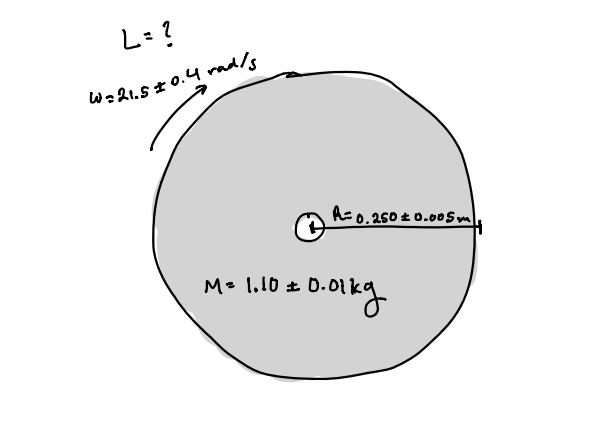 L = ?
W = 21.5 ± 0.4 rad/s
R = 0.250 ± 0.005 m
M = 1.10 ± 0.01 kg